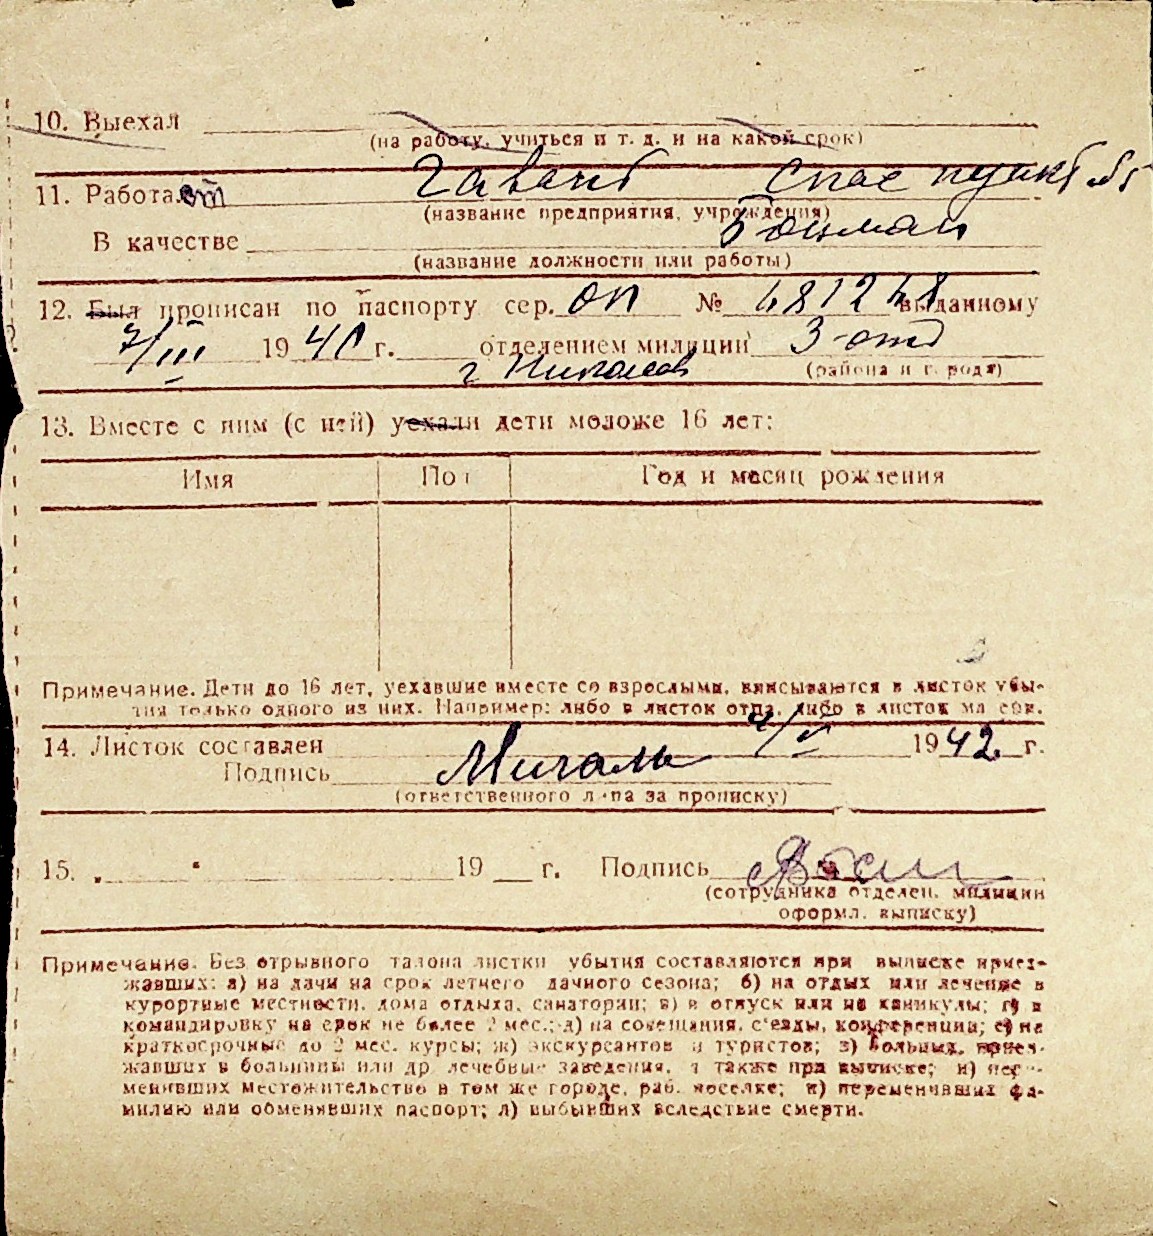 10. Выехал
(на работу, учиться и т. д. и на какой срок)
Гавань Спас пункт №5
11. Работает
(название предприятия, учреждения)
Боцман
В качестве
(название должности или работы)
12. Был прописан по паспорту сер. ОП № 681248 выданному
7/III 1941 г. отделением милиции 3-отд
г. Николаев (района и города)
13. Вместе с ним (с ней) уехали дети моложе 16 лет:
Имя Пол Год и месяц рождения
Примечание. Дети до 16 лет, уехавшие вместе со взрослыми, вписываются в листок убы-
тия только одного из них. Например: либо в листок отца, либо в листок матери.
14. Листок составлен 4/V 1942 г.
Подпись
(ответственного лица за прописку)
15. 19 г. Подпись
(сотрудника отделен. милиции
оформл. выписку)
Примечание. Без отрывного талона листки убытия составляются при выписке приез-
жавших: а) на дачи на срок летнего дачного сезона; б) на отдых или лечение в
курортные местности, дома отдыха, санатории; в) в отпуск или на каникулы; г) в
командировку на срок не более 2 мес.; д) на совещания, с'езды, конференции; е) на
краткосрочные до 2 мес. курсы; ж) экскурсантов и туристов; з) больных, приез-
жавших в больницы или др лечебные заведения, а также при выписке; и) пере-
менивших местожительство в том же городе, раб. поселке; к) переменивших фа-
милию или обменявших паспорт; л) выбывших вследствие смерти.